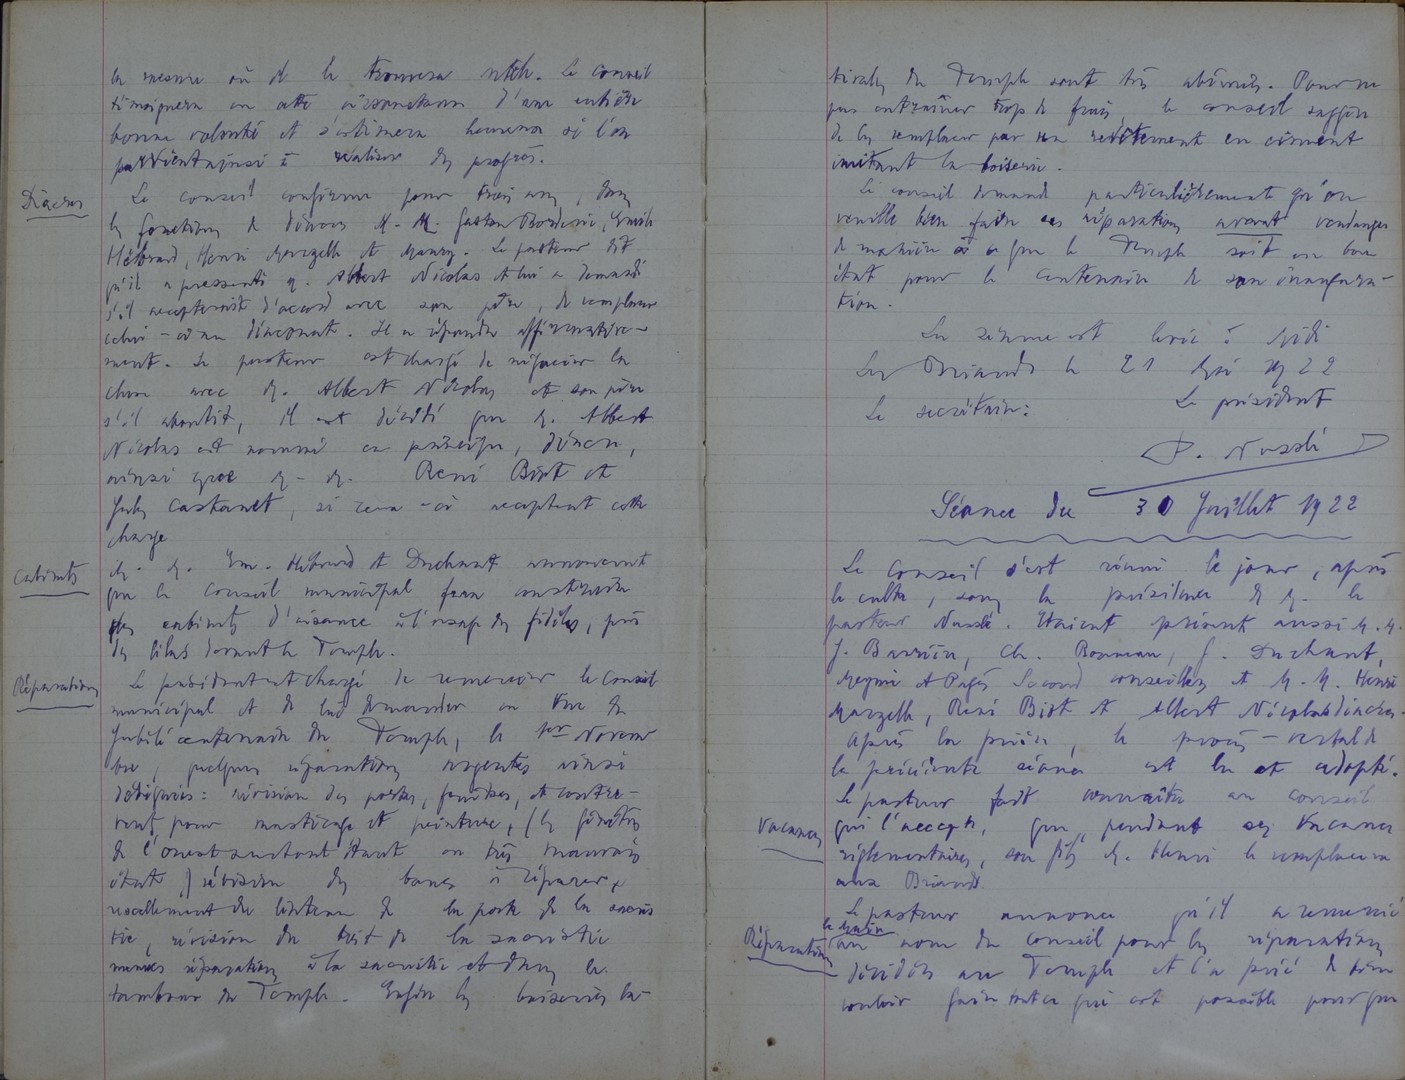 la mesure où il le trouvera utile. Le conseil
témoignera en cette circonstance d'une entière
bonne volonté et s'estimera heureux si l'on
parvient ainsi à réaliser des progrès.
Diacres
Le conseil confirme pour trois ans, dans
les fonctions de diacres M. M. Gaston Borderie, Emile
Hébrard, Henri Marzelle et Maury. Le pasteur dit
qu'il a pressenti M. Albert Nicolas et lui a demandé
s'il accepterait d'accord avec son père, de remplacer
celui-ci au diaconat. Il a répondu affirmative-
ment. Le pasteur est chargé de négocier la
chose avec M. Albert Nicolas et son père
s'il aboutit, il est décidé que M. Albert
Nicolas est nommé en principe, diacre,
ainsi que M. M. René Biot et
July Castanet, si ceux-ci acceptent cette
charge
Cabinets
M. M. Em. Hébrard et Duchant annoncent
que le Conseil municipal fera construire
des cabinets d'aisance à l'usage des fidèles, près
des lilas devant le Temple.
Réparations
Le président est chargé de remercier le Conseil
municipal et de lui demander en vue du
Jubilé centenaire du Temple, le 1er Novem-
bre, quelques réparations urgentes ainsi
désignées : révision des portes, fenêtres, et contre-
vents, pour masticage et peinture, (les fenêtres
de l'ouest surtout étant en très mauvais
état) révision des bancs à réparer,
rescellement du linteau de la porte de la sacris
tie, révision du toit de la sacristie
menues réparations à la sacristie et dans le
tambour du Temple. Enfin les boiseries la-
térales du Temple sont très abîmées. Pour ne
pas entraîner trop de frais, le conseil suggère
de les remplacer par un revêtement en ciment
imitant la boiserie.
Le conseil demande particulièrement qu'on
veuille bien faire ces réparations avant vendanges
de manière à ce que le Temple soit en bon
état pour le centenaire de son inaugura-
tion.
La séance est levée à midi
Les Briands le 21 Mai 1922
Le secrétaire : Le président
P. Nusslé
Séance du 30 Juillet 1922
Le Conseil s'est réuni le jour, après
le culte, sous la présidence de M. le
pasteur Nusslé. Etaient présents aussi M. M.
J. Barrière, Ch. Bonneau, J. Duchant,
Meymi et Pagès Second conseillers et M. M. Henri
Marzelle, René Biot et Albert Nicolas diacres.
Après la prière, le procès-verbal de
la précédente séance est lu et adopté.
Vacances
Le pasteur fait connaître au conseil
qui l'accepte, que, pendant ses vacances
réglementaires, son fils M. Henri le remplacera
aux Briands.
Réparations
Le pasteur annonce qu'il a remercié
le Maire
au nom du conseil pour les réparations
décidées au Temple et l'a prié de bien
vouloir faire tout ce qui est possible pour que